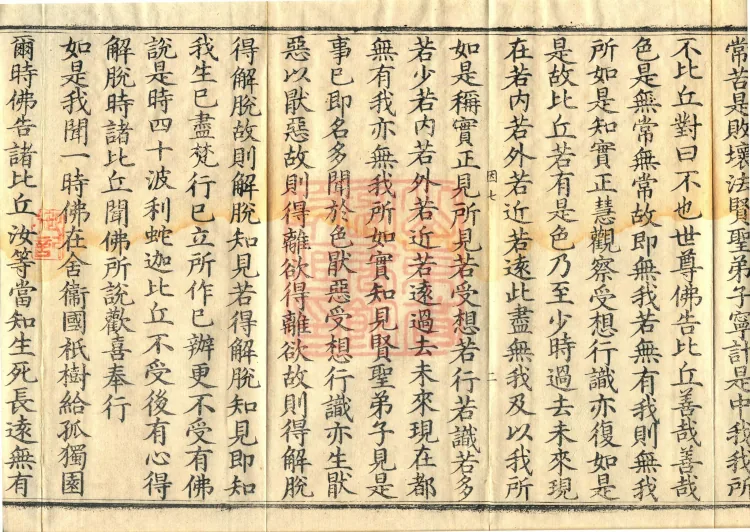 常苦是敗壞法賢聖弟子寧計是中我我所
不比丘對曰不也世尊佛告比丘善哉善哉
色是無常無常故即無我若無有我則無我
所如是知實正慧觀察受想行識亦復如是
是故比丘若有是色乃至少時過去未來現
在若內若外若近若遠此盡無我及以我所
因七
二
如是稱實正見所見若受想若行若識若多
若少若內若外若近若遠過去未來現在都
無有我亦無我所如實知見賢聖弟子見是
事已即名多聞於色厭惡受想行識亦生厭
惡以厭惡故則得離欲得離欲故則得解脫
得解脫故則解脫知見若得解脫知見即知
我生已盡梵行已立所作已辦更不受有佛
說是時四十波利蛇迦比丘不受後有心得
解脫時諸比丘聞佛所說歡喜奉行
如是我聞一時佛在舍衞國祇樹給孤獨園
爾時佛告諸比丘汝等當知生死長遠無有